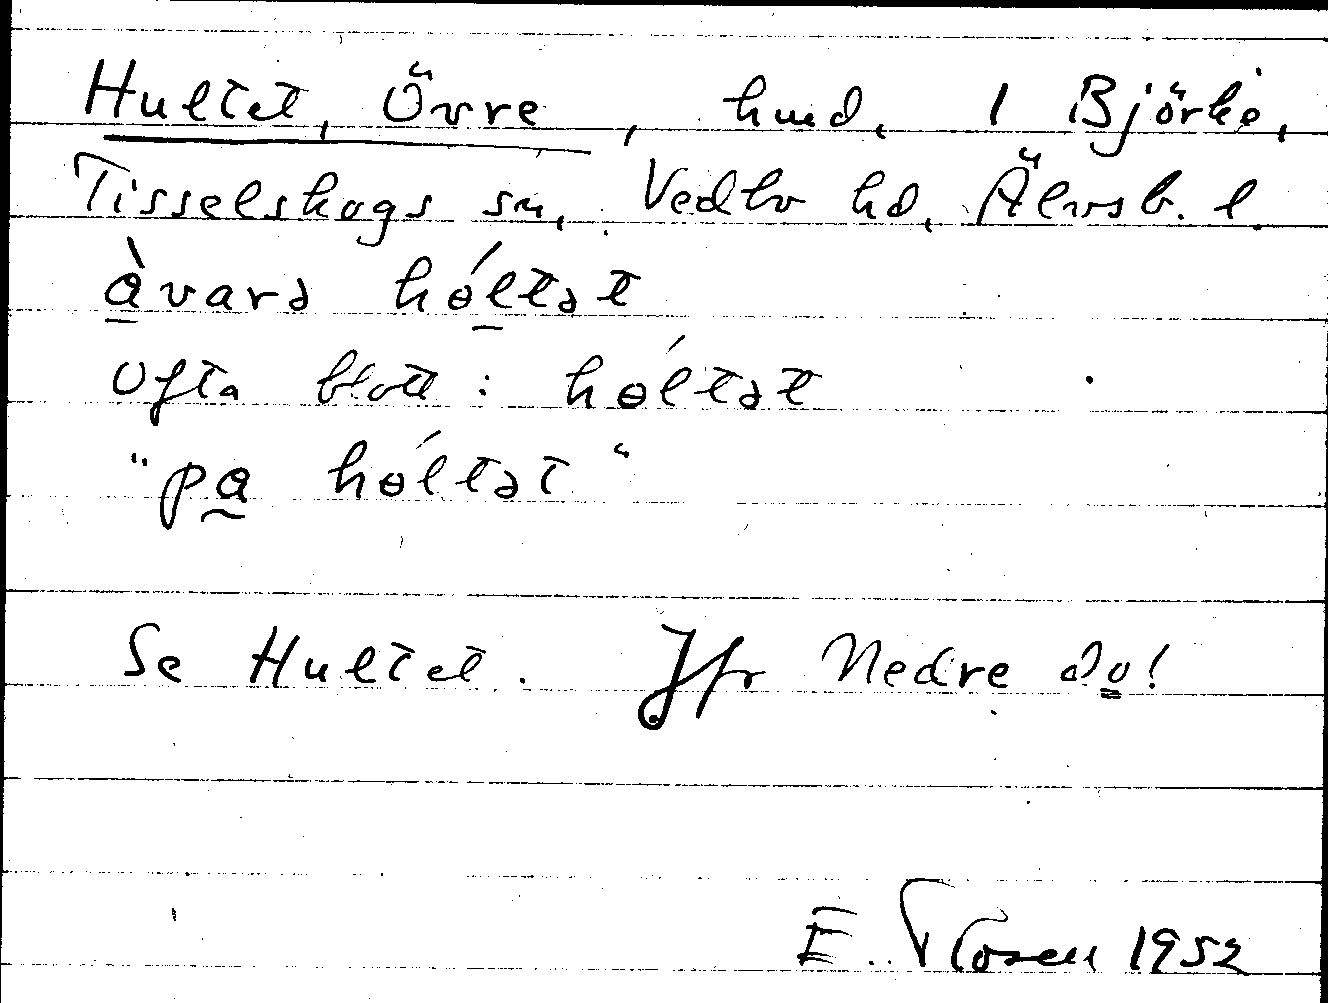 Hultet, Övre, hmd, 1 Björke,
Tisselskogs sn, Vedbo hd, Älvsb. l
à̲varə hól̲tət
Ofta blott: hɵ́ltət
"pa̰ hɵ́ltət"
Se Hultet. Jfr Nedre do!
E. Flosen 1952